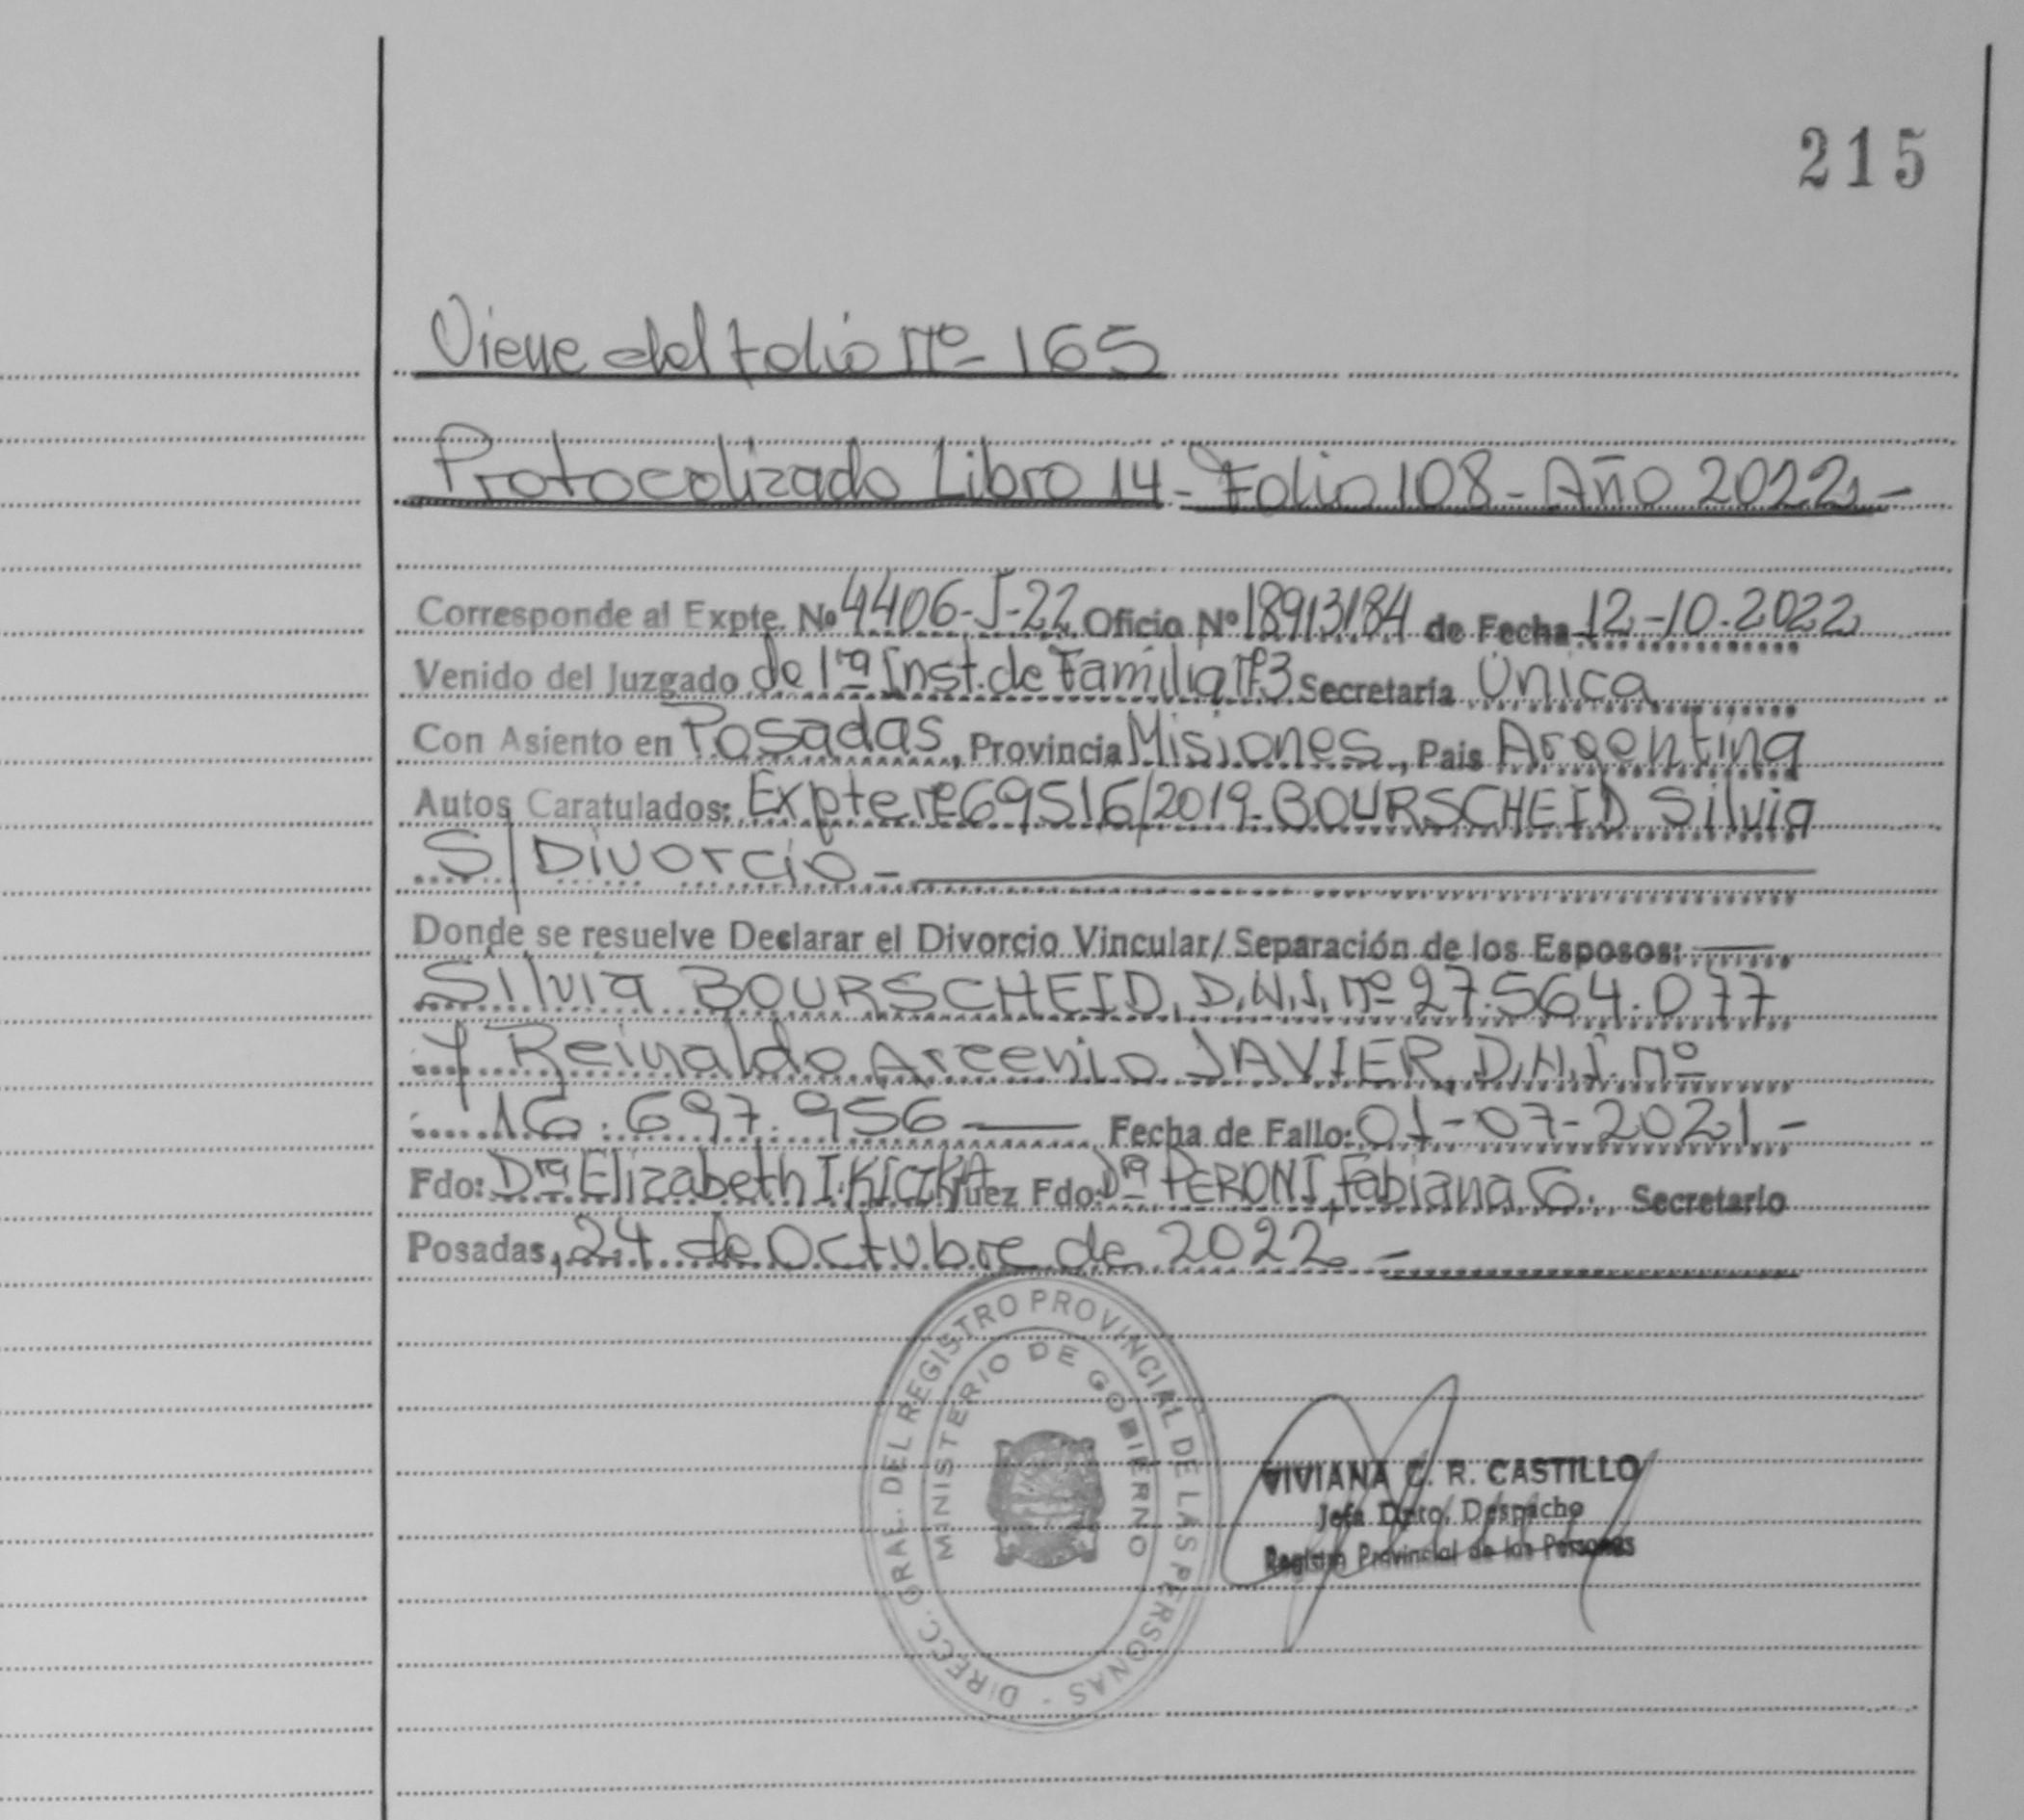 215
Viene del folio Nº 165
Protocolizado Libro 14 - Folio 108 - Año 2022 -
Corresponde al Expte. Nº 4406-J-22 Oficio Nº 18913184 de Fecha 12-10-2022
Venido del Juzgado de 1ra Inst. de Familia Nº3 Secretaría Única
Con Asiento en Posadas, Provincia Misiones, País Argentina
Autos Caratulados: Expte nº 69516/2019 - BOURSCHEID Silvia
S/Divorcio -
Donde se resuelve Declarar el Divorcio Vincular/Separación de los Esposos:
Silvia BOURSCHEID, D.N.I. Nº 27.564.077
y Reinaldo Arcenio JAVIER, D.N.I. Nº
16.697.956 Fecha de Fallo: 01-07-2021 -
Fdo: Dra Elizabeth I. KICZKA Juez Fdo: Dra PERONI, Fabiana G. Secretario
Posadas, 24 de Octubre de 2022 -
DIRECC. GRAL. DEL REGISTRO PROVINCIAL DE LAS PERSONAS -
MINISTERIO DE GOBIERNO
VIVIANA C. R. CASTILLO
Jefa Dpto. Despacho
Registro Provincial de las Personas